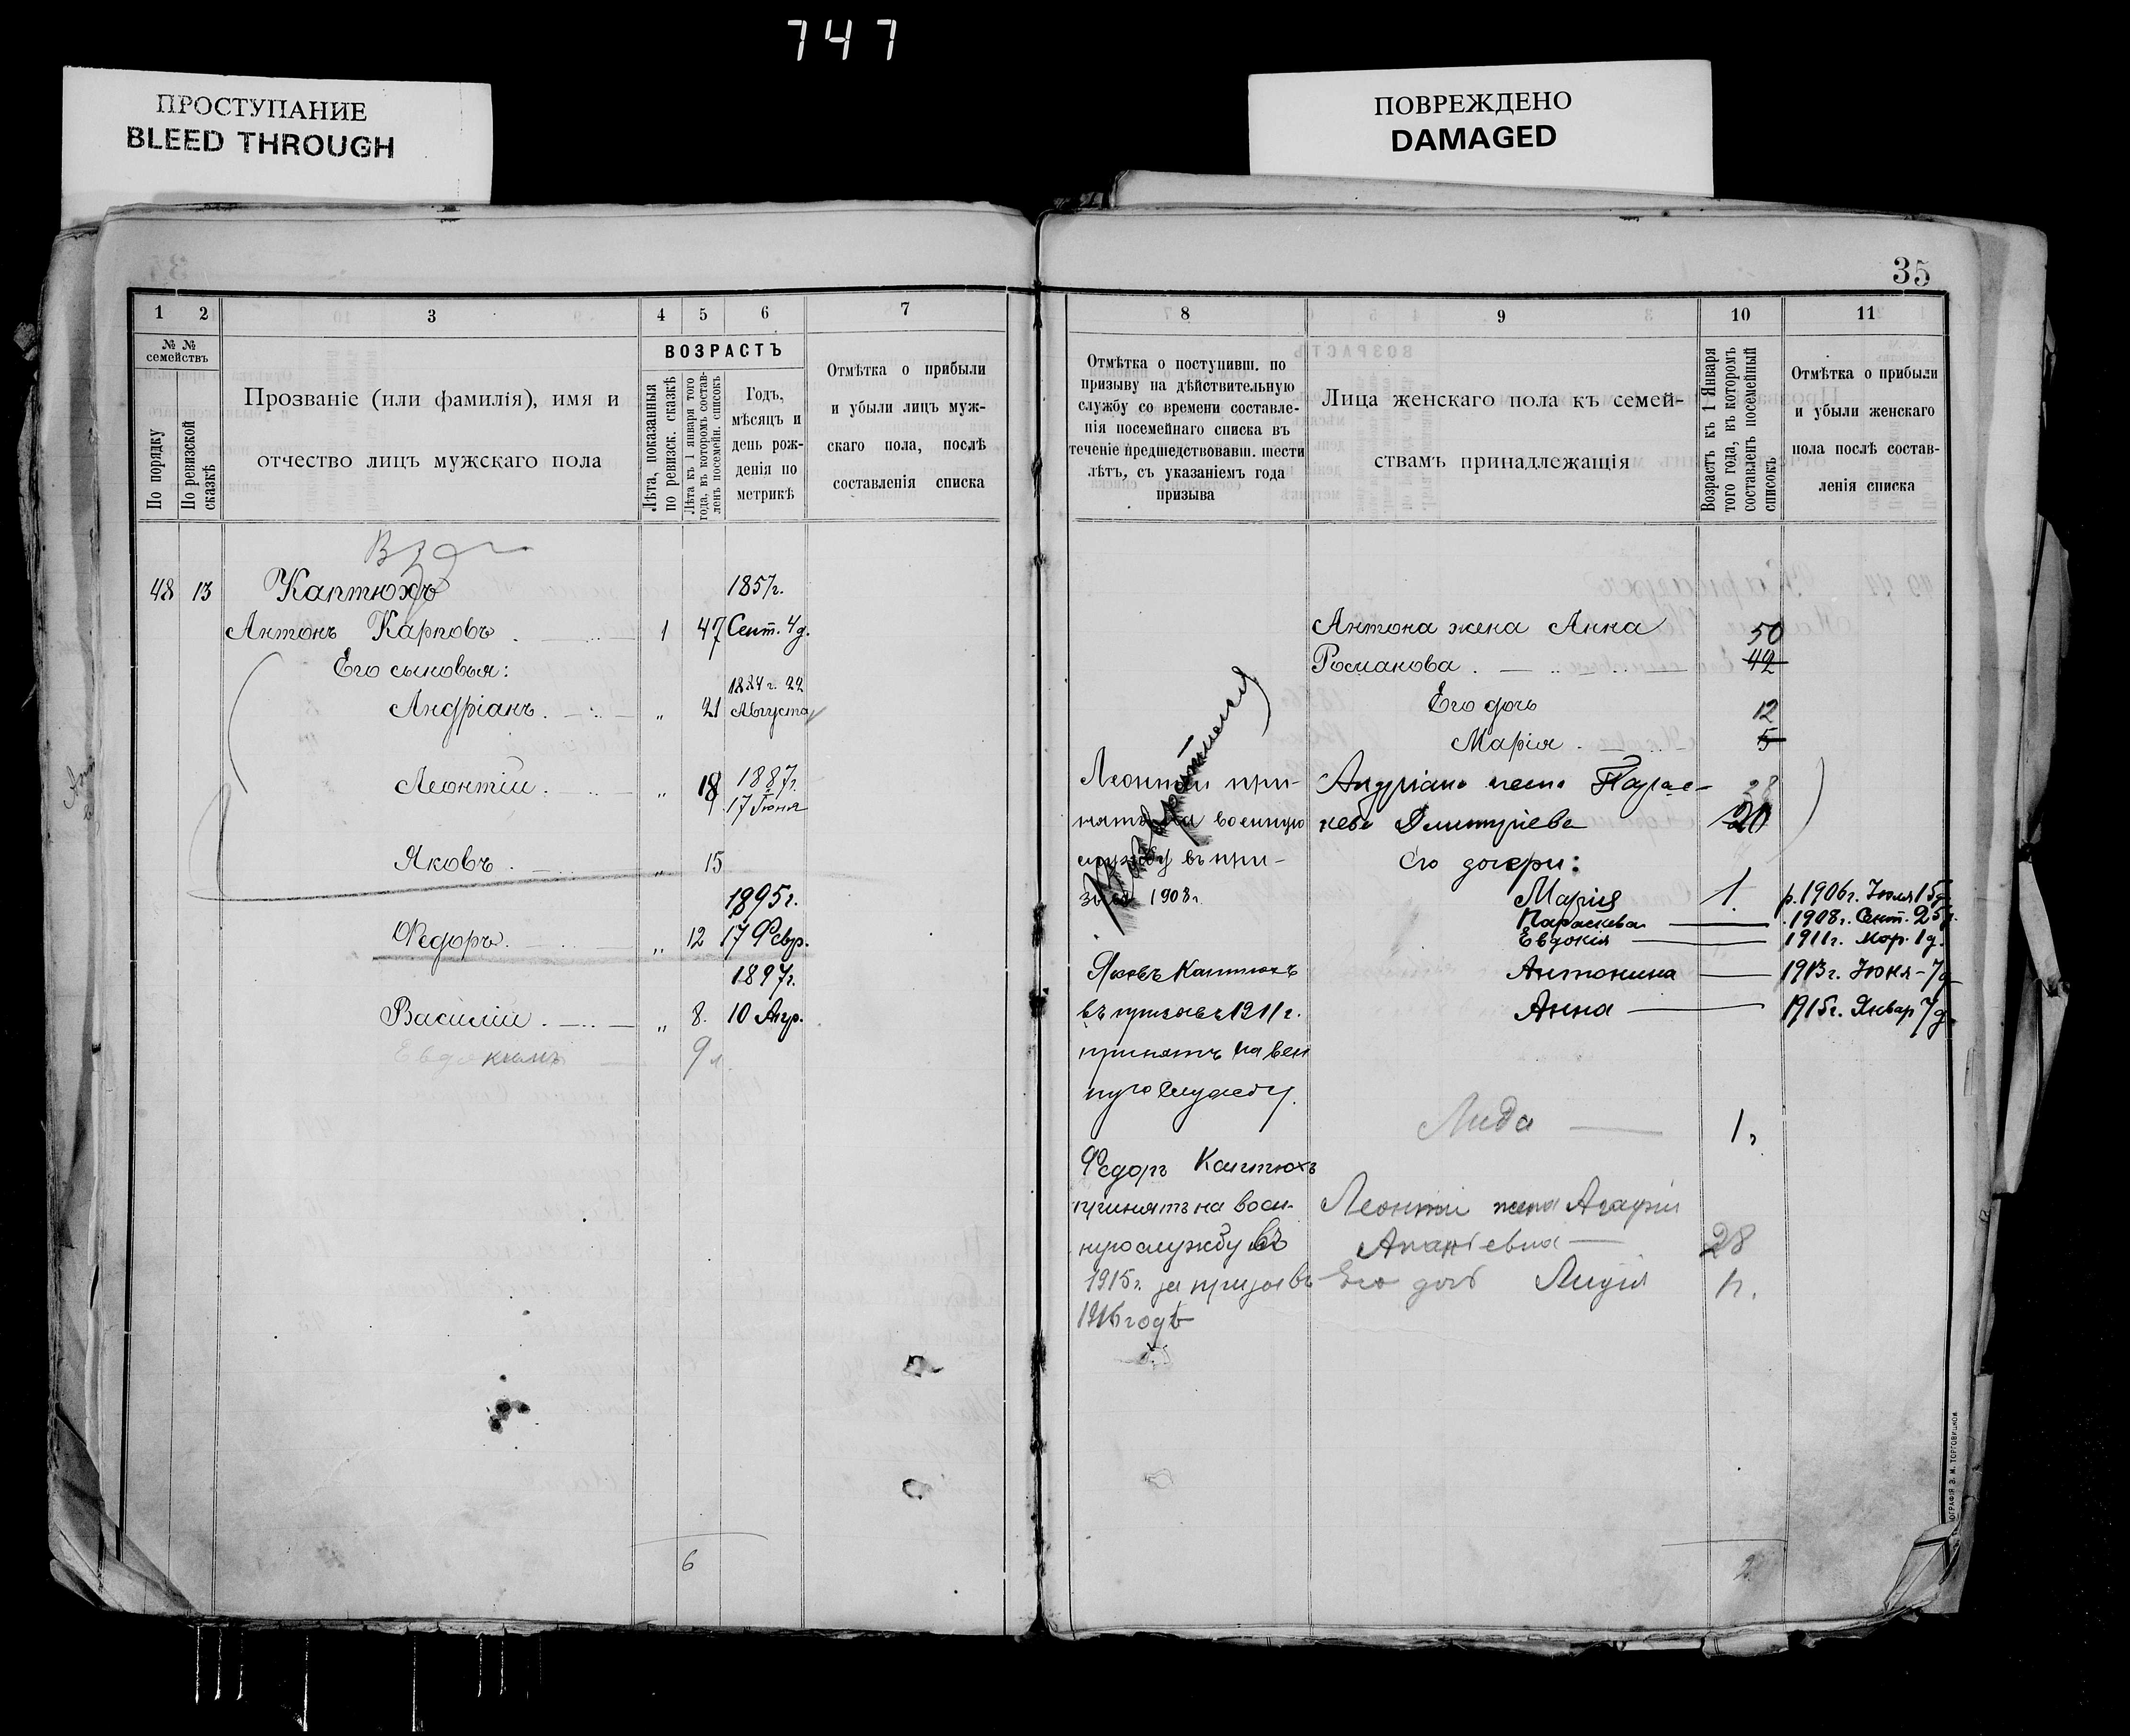 747
ПРОСТУПАНИЕ
BLEED THROUGH
ПОВРЕЖДЕНО
DAMAGED
35
1 2 3 4 5 6 7
№ №
семействъ
По порядку
По ревизской сказкѣ
Прозваніе (или фамилія), имя и
отчество лицъ мужскаго пола
ВОЗРАСТЪ
Лѣта, показанныя
по ревизск. сказкѣ
Лѣта къ 1 января того
года, въ которомъ состав-
ленъ посемейн. списокъ
Годъ,
мѣсяцъ и
день рож-
денія по
метрикѣ
Отмѣтка о прибыли
и убыли лицъ муж-
скаго пола, послѣ
составленія списка
48 13 Каптюхъ 1857г.
Антонъ Карповъ 1 47 Сент. 4 д.
Его сыновья:
1884 г. 22
Андріанъ „ 21 Августа
Леонтій „ 18 1887г.
17 Іюня
Яковъ „ 15
1895г.
Ѳедоръ „ 12 17 Февр.
1897г.
Василій „ 8. 10 Апр.
Евдокимъ 9 л.
6
8 9 10 11
Отмѣтка о поступивш. по
призыву на дѣйствительную
службу со времени составле-
нія посемейнаго списка въ
теченіе предшедствовавш. шести
лѣтъ, съ указаніемъ года
призыва
Лица женскаго пола къ семей-
ствамъ принадлежащія
Возрастъ къ 1 Января
того года, въ которомъ
составленъ посемейный
списокъ
Отмѣтка о прибыли
и убыли женскаго
пола послѣ состав-
ленія списка
Леонтій при-
нятъ на военную
службу въ при-
зывъ 1908 г.
Яковъ Каптюхъ
въ призывъ 1911 г.
принятъ на воен
ную службу.
Ѳедоръ Каптюхъ
принятъ на воен-
ную службу въ
1915г. за призывъ
1916 годъ
Антона жена Анна 50
Романова 42
Его дочь 12
Марія 5
Андріана жена Парас- 28
кева Дмитріева 20
Его дочери:
Марія 1. р. 1906г. Іюля 15 д.
Параскева 1908г. Сент. 25 д.
Евдокія 1911г. Мар. 1 д.
Антонина 1913г. Іюня 7 д
Анна 1915г. Январ 7 д.
Лида 1
Леонтія жена Агафія
28
Его дочь Лидія